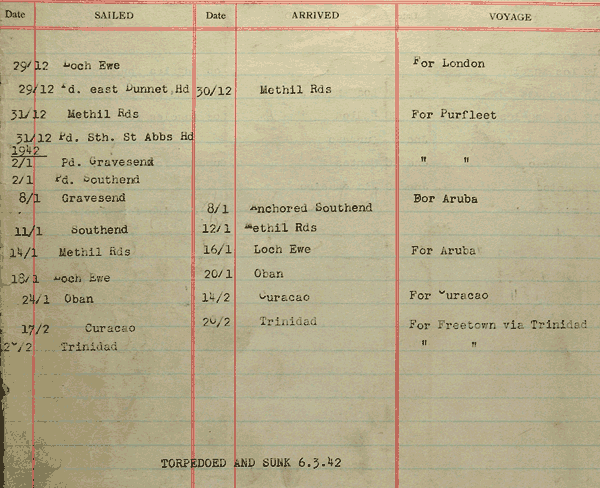 Date SAILED Date ARRIVED VOYAGE
29/12 Loch Ewe For London
29/12 Pd. east Dunnet Hd 30/12 Methil Rds
31/12 Methil Rds For Purfleet
31/12 Pd. Sth. St Abbs Hd
1942
2/1 Pd. Gravesend " "
2/1 Pd. Southend
8/1 Gravesend Dor Aruba
8/1 Anchored Southend
11/1 Southend 12/1 Methil Rds
14/1 Methil Rds 16/1 Loch Ewe For Aruba
18/1 Loch Ewe 20/1 Oban
24/1 Oban 14/2 Curacao For Curacao
17/2 Curacao 20/2 Trinidad For Freetown via Trinidad
Trinidad " "
TORPEDOED AND SUNK 6.3.42